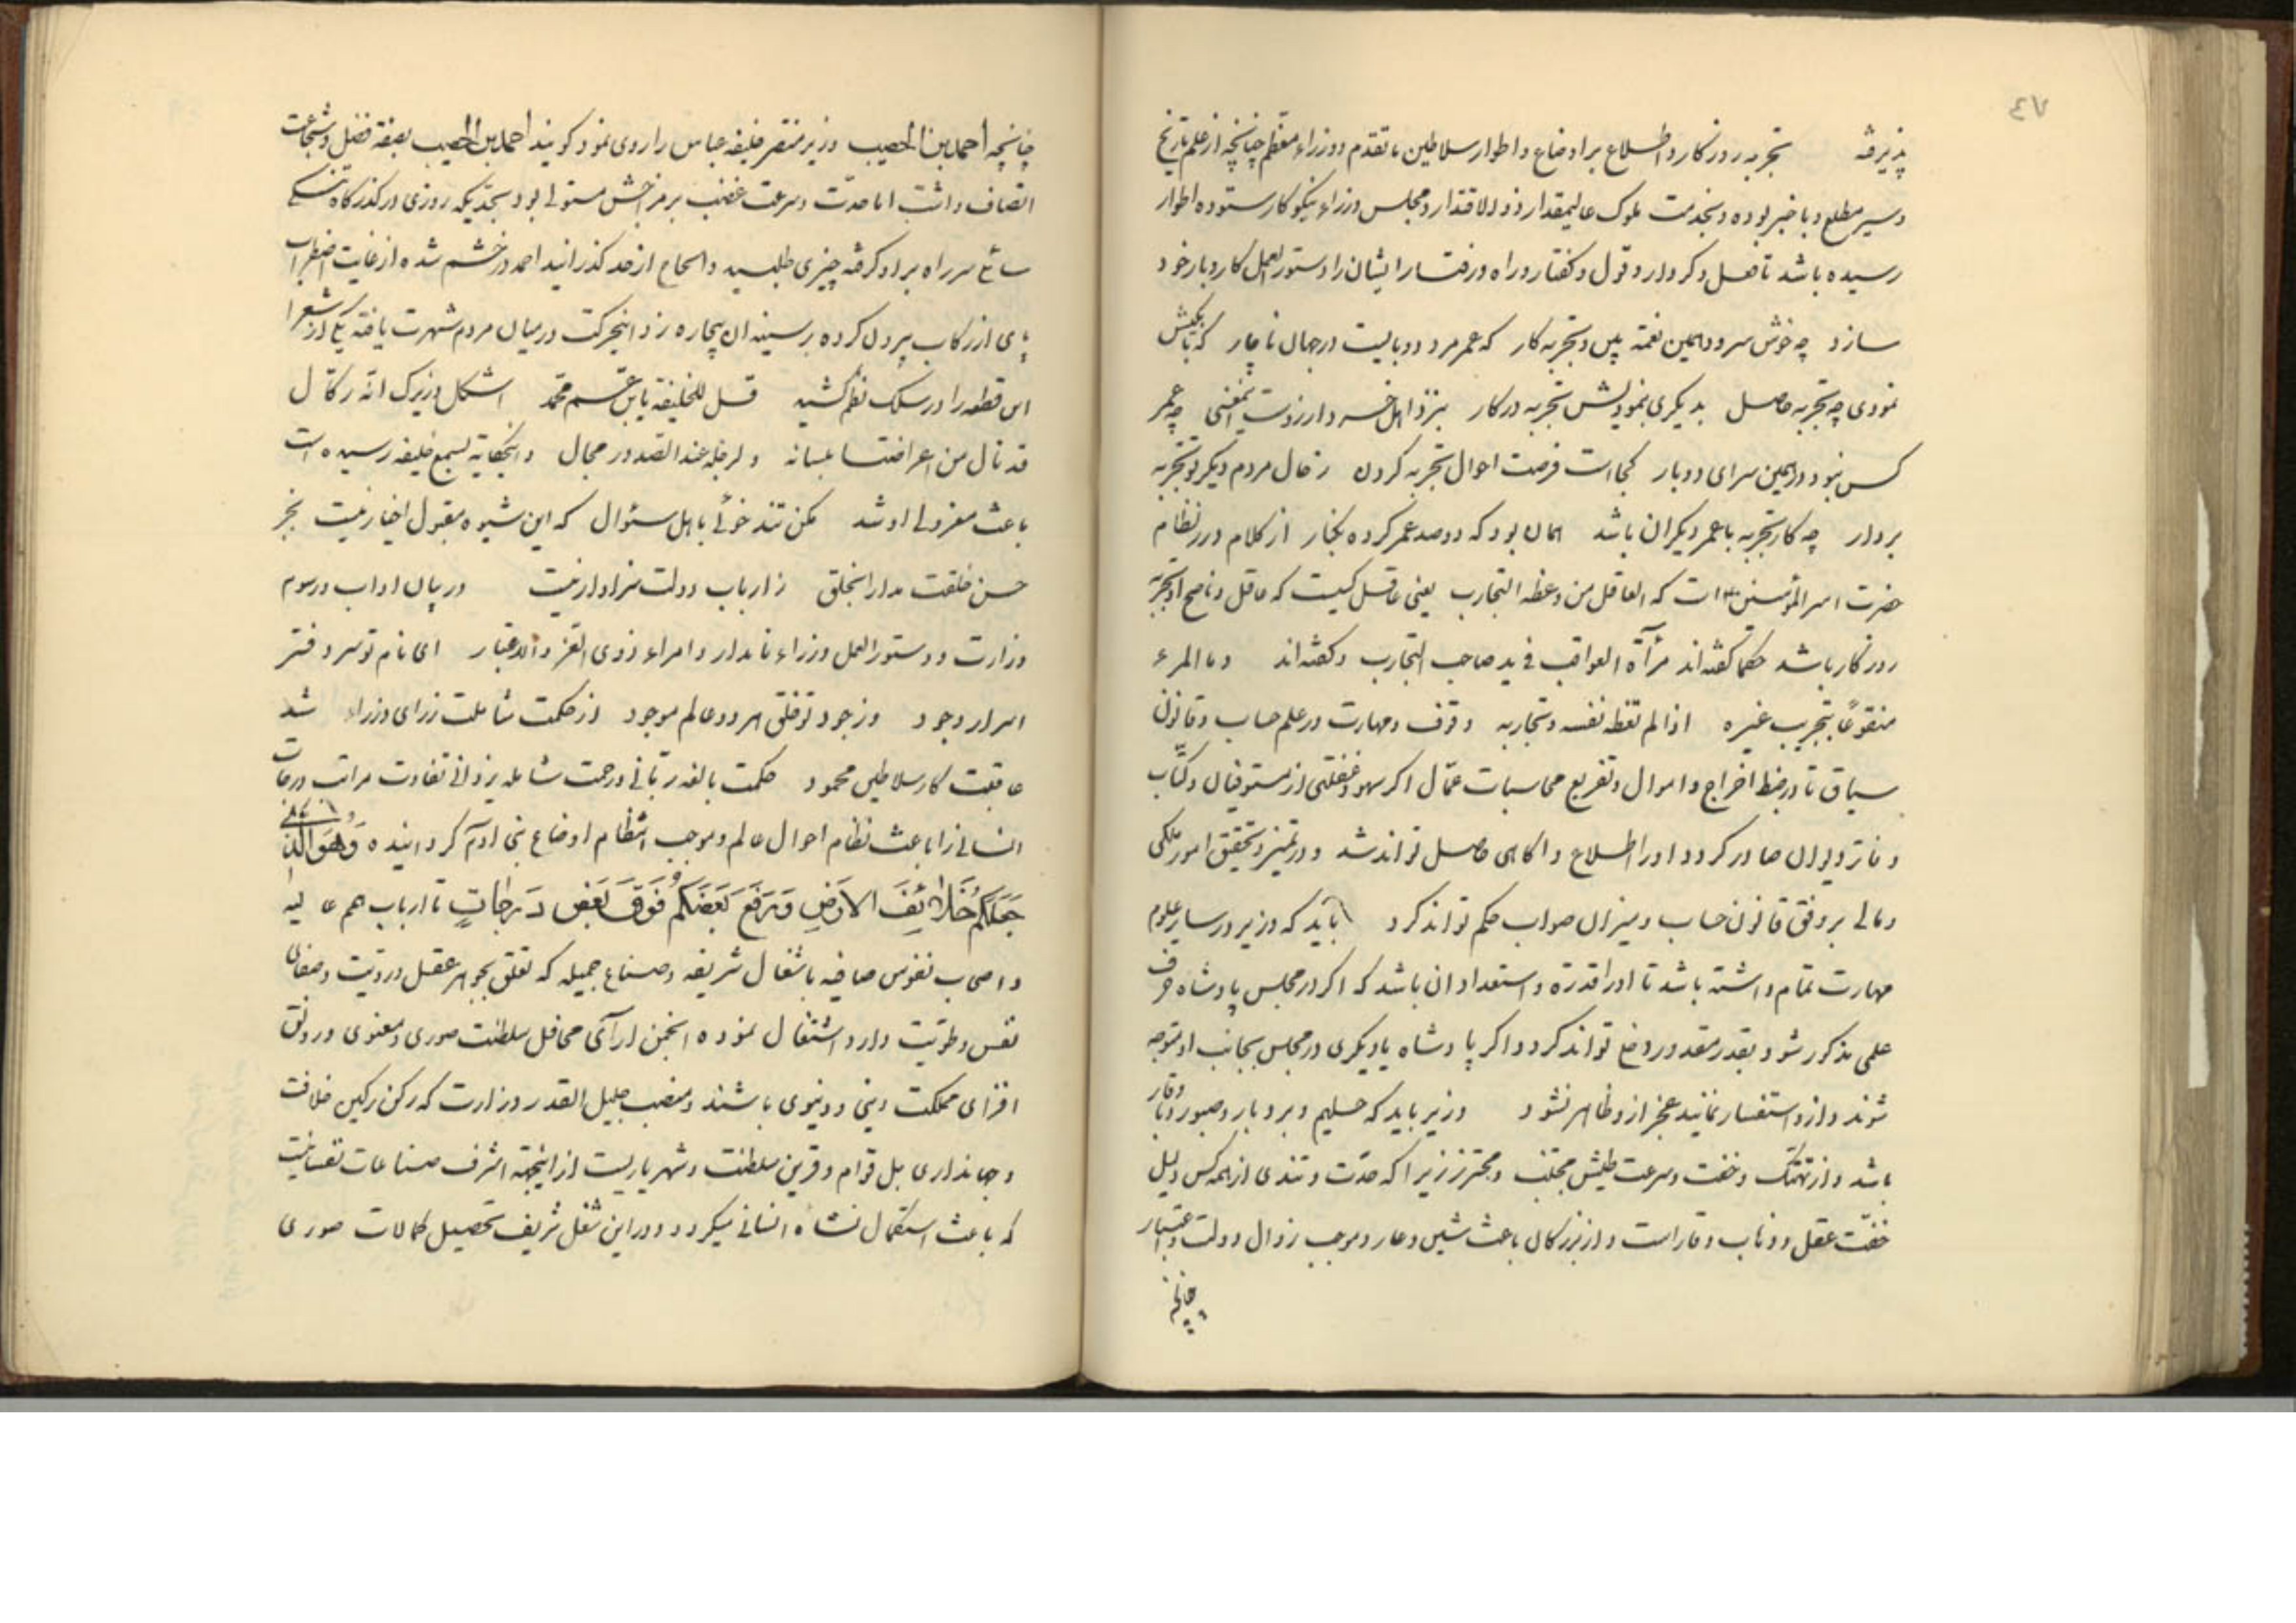 ٤٧
پذیرفته تجربه روزکار و اطلاع بر اوضاع و اطوار سلاطین ما تقدم و وزراء معظم چنانچه از علم تاریخ
و سیر مطلع و با خبر بوده و بخدمت ملوک عالیمقدار ذوی الاقتدار و مجلس وزراء نیکو کار ستوده اطوار
رسیده باشد تا فعل و کردار و قول و کفتار و راه و رفتار ایشان را دستور العمل کار و بار خود
سازد چه خوش سرود همین نغمه پیر و تجربه کار که عمر مرد دو بایست در جهان ناچار که تا بیکیش
نمودی چه تجربه حاصل بدیکری بنمودیش تجربه در کار بنزد اهل خرد وارزوست اینمعنی چه عمر
کس نبود در همین سرای دو بار کجاست فرصت احوال تجربه کردن ز حال مردم دیکر تو تجربه
بردار چه کار تجربه با عمر دیکران باشد همان بود که دو صد عمر کرده بکار از کلام درر نظام
حضرت امیر المؤمنین است که العاقل من وعظه التجارب یعنی عاقل کیست که عاقل و ناصح او تجربه
روزکار باشد حکما کفته اند مرآة العواقب فی ید صاحب التجارب و کفته اند وما المرء
منفوعًا بتجریب غیره اذا لم تعظه نفسه وتجاربه وقوف و مهارت در علم حساب و قانون
سیاق تا در ضبط اخراج و اموال و تفریع محاسبات عمّال اکر سهو و غفلتی از مستوفیان و کتّاب
دفاتر دیوان صادر کردد او را اطلاع و اکاهی حاصل تواند شد و در تمیز و تحقیق امور ملکی
و مالی بر وفق قانون حساب و میزان صواب حکم تواند کرد باید که وزیر در سایر علوم
مهارت تمام داشته باشد تا او را قدرة و استعداد ان باشد که اکر در مجلس پادشاه حرف
علمی مذکور شود بقدر مقدور دخل تواند کرد و اکر پادشاه یا دیکری در مجلس بجانب او متوجه
شوند و از و استفسار نمایند عجز از و ظاهر نشود وزیر باید که حلیم و بردبار و صبور و با وقار
باشد و از تهتک و خفت و سرعت طیش مجتنب و محترز زیرا که حدّت و تندی از همه کس دلیل
خفّت عقل و ذهاب وقار است و از بزرکان باعث شین و عار و موجب زوال دولت و اعتبار
چنانچه
چنانچه احمد بن الخصیب وزیر منتصر خلیفه عباس را روی نمود کویند احمد بن الخصیب بصفة فضل و شجاعت
اتصاف داشت اما حدّت و سرعت غضب بر مزاجش مستولی بود بحدّیکه روزی در کذرکاه تنکی
سائلی سر راه بر او کرفته چیزی طلبید و الحاح از حد کذرانید احمد در خشم شده از غایت اضطراب
پای از رکاب بیرون کرده بر سینه ان بیچاره زد اینحرکت در میان مردم شهرت یافته یکی از شعرا
این قطعه را در سلک نظم کشید قل للخلیفة یابن عمّ محمّد اشکل وزیرک انه رکّال
قد نال من اعراضنا بلسانه ولرجله عند الصدور مجال و اینحکایة بسمع خلیفه رسیده است
باعث معزولی او شد مکن تند خوئی با اهل سئوال که این شیوه مقبول اخیار نیست بجز
حسن خلقت مدارا بخلق ز ارباب دولت سزاوار نیست در بیان اداب و رسوم
وزارت و دستور العمل وزراء نامدار و امراء ذوی العزّ و الاعتبار ای نام تو سر دفتر
اسرار وجود وز جود تو خلق هر دو عالم موجود از حکمت شاملت ز رای وزراء شد
عاقبت کار سلاطین محمود حکمت بالغه ربّانی و رحمت شامله یزدانی تفاوت مراتب و درجات
انسانی را باعث نظام احوال عالم و موجب انتظام اوضاع بنی ادم کردانیده وَهُوَ الَّذی
جَعَلَکُم خَلائِفَ الارَضِ وَرَفَعَ بَعضَکُم فَوقَ بَعضٍ دَرَجاتٍ تا ارباب همم عالیه
و اصحاب نفوس صافیه باشغال شریفه و صنایع جمیله که تعلق بجوهر عقل و رویّت و صفای
نفس و طویّت دارد اشتغال نموده انجمن ارآی محافل سلطنت صوری و معنوی و رونق
افزای مملکت دینی و دنیوی باشند و منصب جلیل القدر وزارت که رکن رکین خلافت
و جهانداری بل قوام و قرین سلطنت و شهریاریست از اینجهة اشرف صناعات نفسانیست
که باعث استکمال نشاه انسانی میکردد و در این شغل شریف تحصیل کمالات صوری